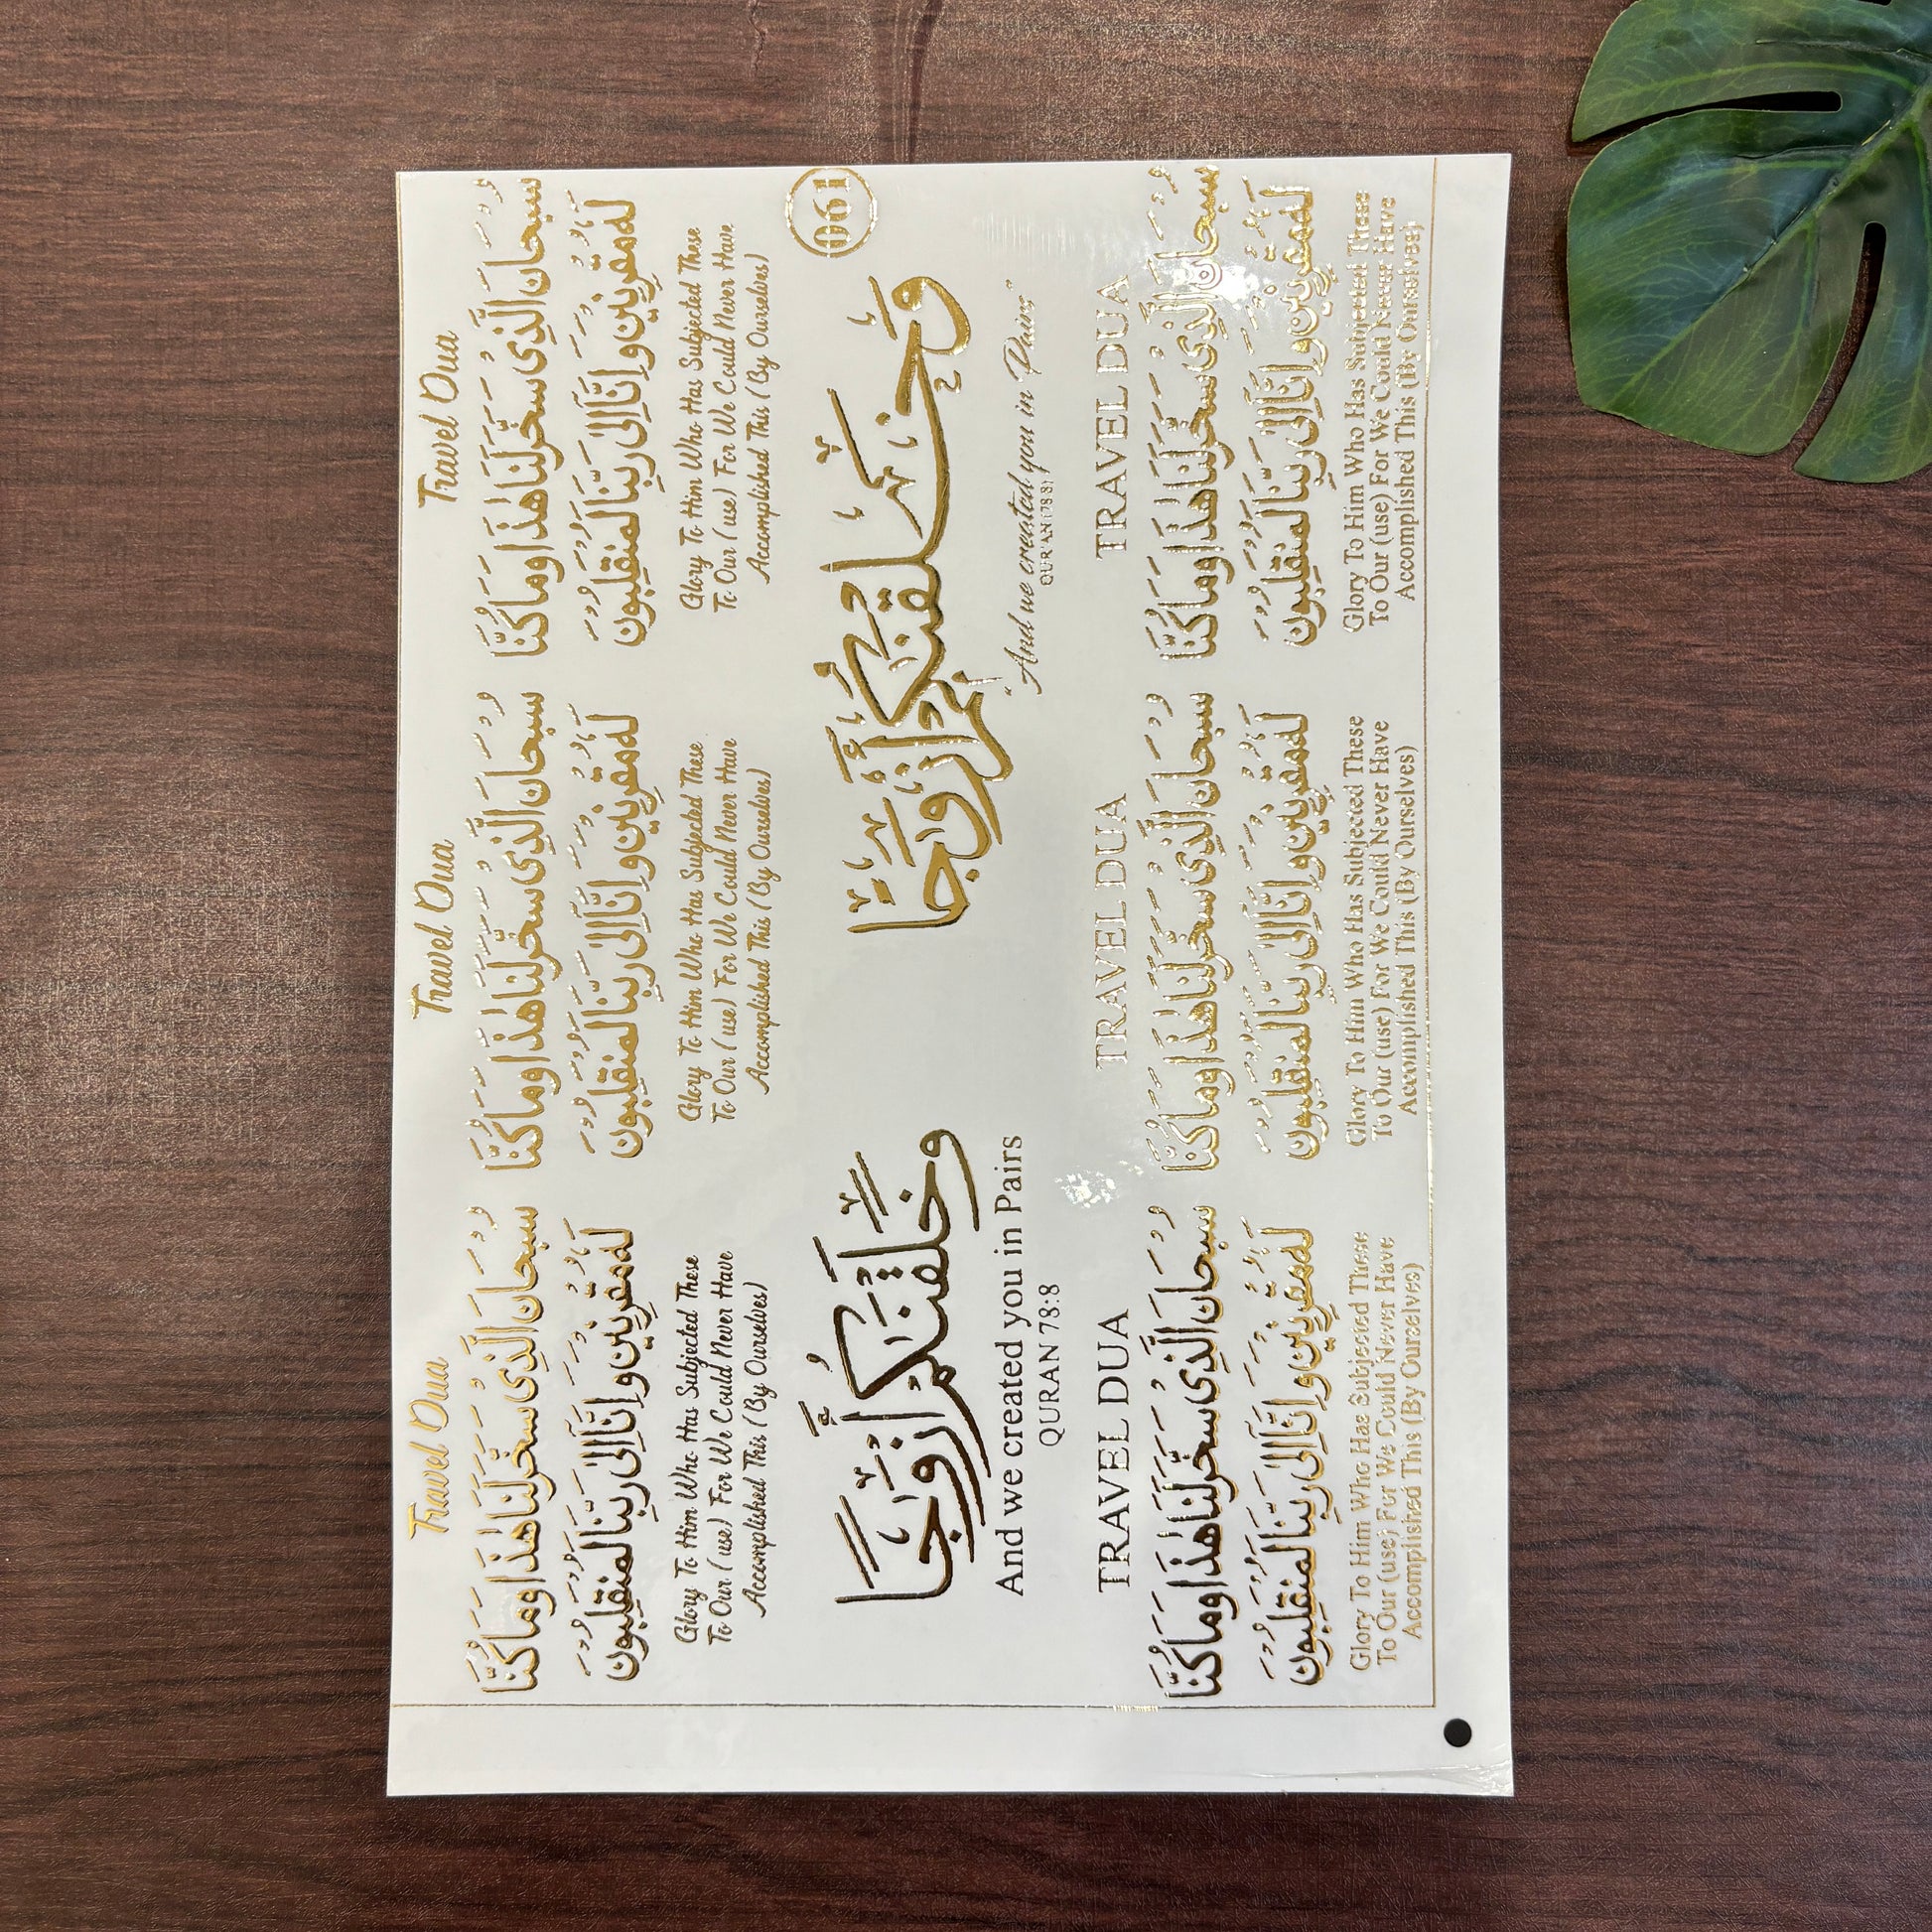 Travel Dua
سُبْحَانَ الَّذِى سَخَّرَ لَنَا هٰذَا وَمَا كُنَّا
لَهُ مُقْرِنِينَ وَإِنَّا إِلَىٰ رَبِّنَا لَمُنْقَلِبُونَ
Glory To Him Who Has Subjected These
To Our (use) For We Could Never Have
Accomplished This (By Ourselves)
Travel Dua
سُبْحَانَ الَّذِى سَخَّرَ لَنَا هٰذَا وَمَا كُنَّا
لَهُ مُقْرِنِينَ وَإِنَّا إِلَىٰ رَبِّنَا لَمُنْقَلِبُونَ
Glory To Him Who Has Subjected These
To Our (use) For We Could Never Have
Accomplished This (By Ourselves)
Travel Dua
سُبْحَانَ الَّذِى سَخَّرَ لَنَا هٰذَا وَمَا كُنَّا
لَهُ مُقْرِنِينَ وَإِنَّا إِلَىٰ رَبِّنَا لَمُنْقَلِبُونَ
Glory To Him Who Has Subjected These
To Our (use) For We Could Never Have
Accomplished This (By Ourselves)
061
وَخَلَقْنَٰكُمْ أَزْوَٰجًا
And we created you in Pairs
QURAN 78:8
وَخَلَقْنَٰكُمْ أَزْوَٰجًا
"And we created you in Pairs"
QUR'AN (78:8)
TRAVEL DUA
سُبْحَانَ الَّذِى سَخَّرَ لَنَا هٰذَا وَمَا كُنَّا
لَهُ مُقْرِنِينَ وَإِنَّا إِلَىٰ رَبِّنَا لَمُنْقَلِبُونَ
Glory To Him Who Has Subjected These
To Our (use) For We Could Never Have
Accomplished This (By Ourselves)
TRAVEL DUA
سُبْحَانَ الَّذِى سَخَّرَ لَنَا هٰذَا وَمَا كُنَّا
لَهُ مُقْرِنِينَ وَإِنَّا إِلَىٰ رَبِّنَا لَمُنْقَلِبُونَ
Glory To Him Who Has Subjected These
To Our (use) For We Could Never Have
Accomplished This (By Ourselves)
TRAVEL DUA
سُبْحَانَ الَّذِى سَخَّرَ لَنَا هٰذَا وَمَا كُنَّا
لَهُ مُقْرِنِينَ وَإِنَّا إِلَىٰ رَبِّنَا لَمُنْقَلِبُونَ
Glory To Him Who Has Subjected These
To Our (use) For We Could Never Have
Accomplished This (By Ourselves)